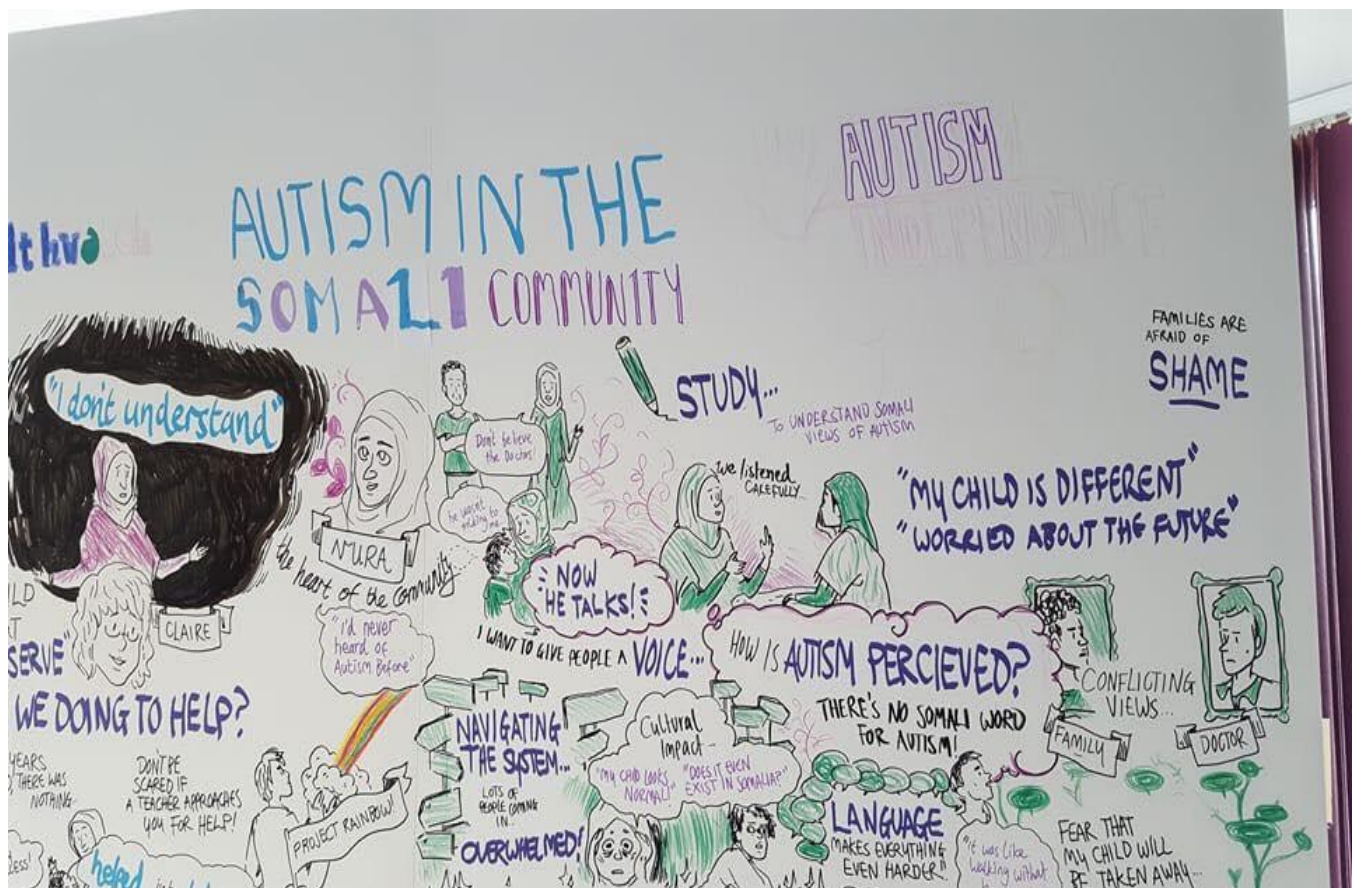 AUTISM
INDEPENDENCE
AUTISM IN THE
SOMALI COMMUNITY
FAMILIES ARE
AFRAID OF
SHAME
"I don't understand"
CLAIRE
NURA
the heart of the community
"I'd never
heard of
Autism Before"
Don't believe
the Doctors!
he wasn't
talking to
me
NOW
HE TALKS!
I WANT TO GIVE PEOPLE A VOICE...
STUDY...
TO UNDERSTAND SOMALI
VIEWS OF AUTISM
we listened
CAREFULLY...
"MY CHILD IS DIFFERENT"
"WORRIED ABOUT THE FUTURE"
HOW IS AUTISM PERCIEVED?
THERE'S NO SOMALI WORD
FOR AUTISM!
CONFLICTING
VIEWS...
FAMILY
DOCTOR
SERVE"
WE DOING TO HELP?
YEARS
THERE WAS
NOTHING
DON'T BE
SCARED IF
A TEACHER APPROACHES
YOU FOR HELP!
PROJECT RAINBOW!
helped
NAVIGATING
THE SYSTEM...
LOTS OF
PEOPLE COMING
IN...
OVERWHELMED!
Cultural
Impact-
"MY CHILD LOOKS
NORMAL"
"DOES IT EVEN
EXIST IN SOMALIA?"
LANGUAGE
MAKES EVERYTHING
EVEN HARDER"
"it was like
walking without
FEAR THAT
MY CHILD WILL
BE TAKEN AWAY...